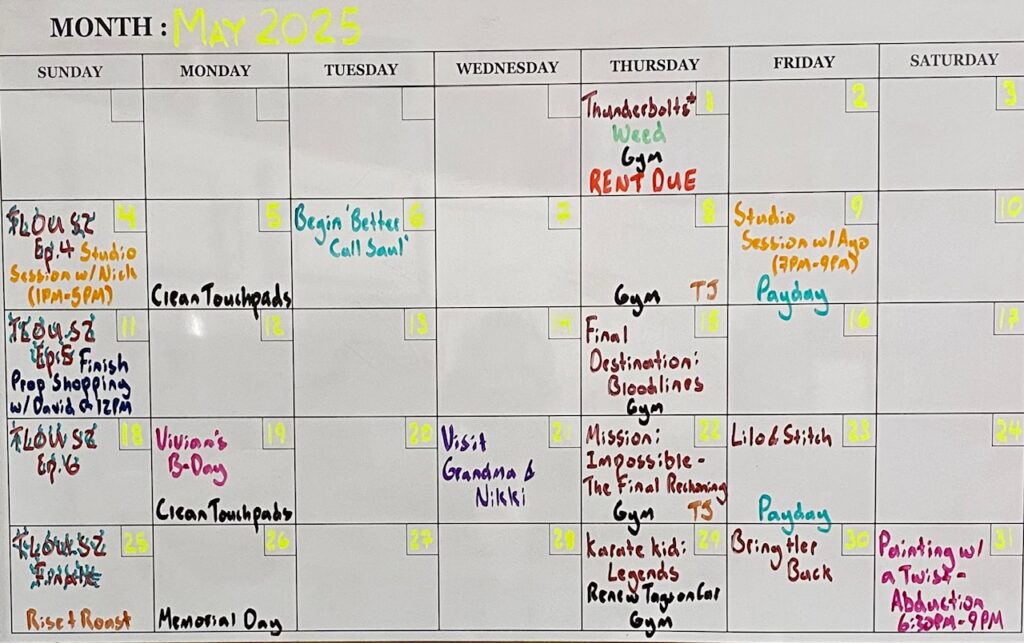 MONTH: MAY 2025
SUNDAY MONDAY TUESDAY WEDNESDAY THURSDAY FRIDAY SATURDAY
1
Thunderbolts*
Weed
Gym
RENT DUE
2
3
4
TLOU SZ
Ep.4 Studio
Session w/ Nick
(1PM-5PM)
5
Clean Touchpads
6
Begin 'Better
Call Saul'
7
8
Gym TJ
9
Studio
Session w/ Ayo
(7PM-9PM)
Payday
10
11
TLOU SZ
Ep.5 Finish
Prop Shopping
w/ David @ 12PM
12
13
14
15
Final
Destination:
Bloodlines
Gym
16
17
18
TLOU SZ
Ep.6
19
Vivian's
B-Day
Clean Touchpads
20
21
Visit
Grandma &
Nikki
22
Mission:
Impossible -
The Final Reckoning
Gym TJ
23
Lilo & Stitch
Payday
24
25
TLOU SZ
Finale
Rise & Roast
26
Memorial Day
27
28
29
Karate Kid:
Legends
Renew Tags on Car
Gym
30
Bring Her
Back
31
Painting w/
a Twist-
Abduction
6:30PM-9PM